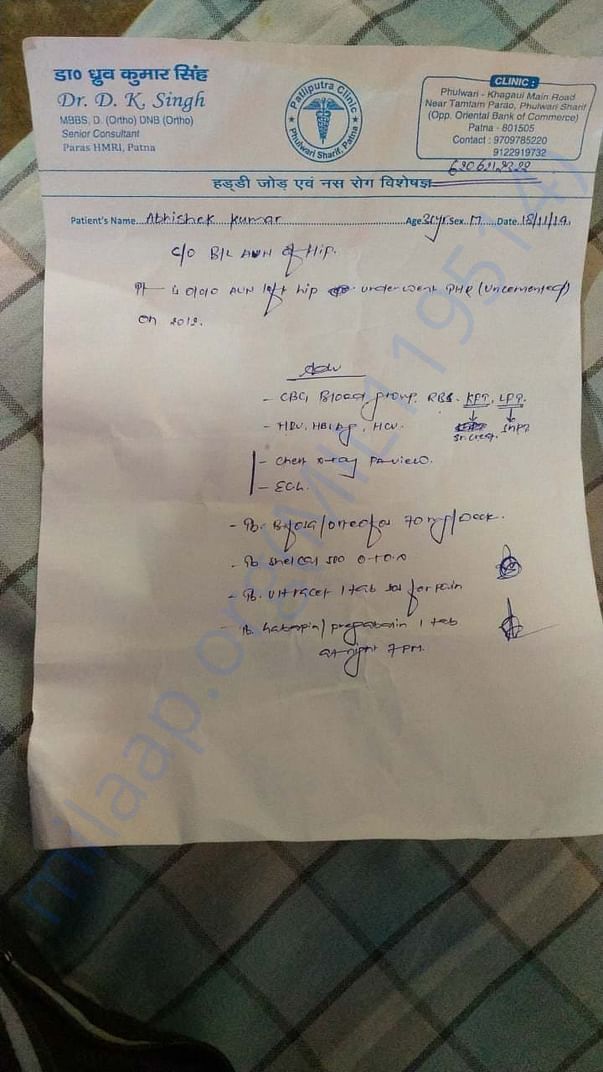 डा० ध्रुव कुमार सिंह
Dr. D. K. Singh
MBBS, D. (Ortho) DNB (Ortho)
Senior Consultant
Paras HMRI, Patna
Patliputra Clinic
Phulwari Sharif, Patna
CLINIC :
Phulwari - Khagaul Main Road
Near Tamtam Parao, Phulwari Sharif
(Opp. Oriental Bank of Commerce)
Patna - 801505
Contact : 9709785220
9122919732
6206212222
हड्डी जोड़ एवं नस रोग विशेषज्ञ
Patient's Name Abhishek Kumar Age Sex M Date 18/11/19
C/O B/L AVN of Hip.
AVN left hip underwent THR (Uncemented)
on 2012.
Adv
- CBC, Blood group, RBS, KFT, LFT
- HIV, HBsAg, HCV
- Chest X-ray PA view
- ECG
70mg/week
Shelcal 500
- Tb. Ultracet 1 tab sos for pain
1 tab
at night 7 PM
milaap.org(MIL1119514)